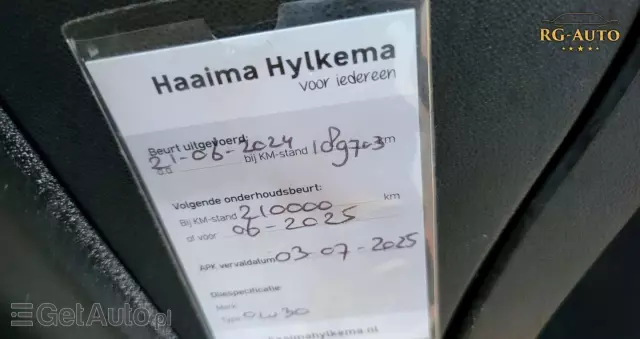 RG-AUTO
Haaima Hylkema
voor iedereen
Beurt uitgevoerd:
d.d 21-06-2024 bij KM-stand 189703 km
Volgende onderhoudsbeurt:
Bij KM-stand 210000 km
of vóór 06-2025
APK vervaldatum 03-07-2025
Oliespecificatie:
Merk
Type 0W30
haaimahylkema.nl
GetAuto.pl